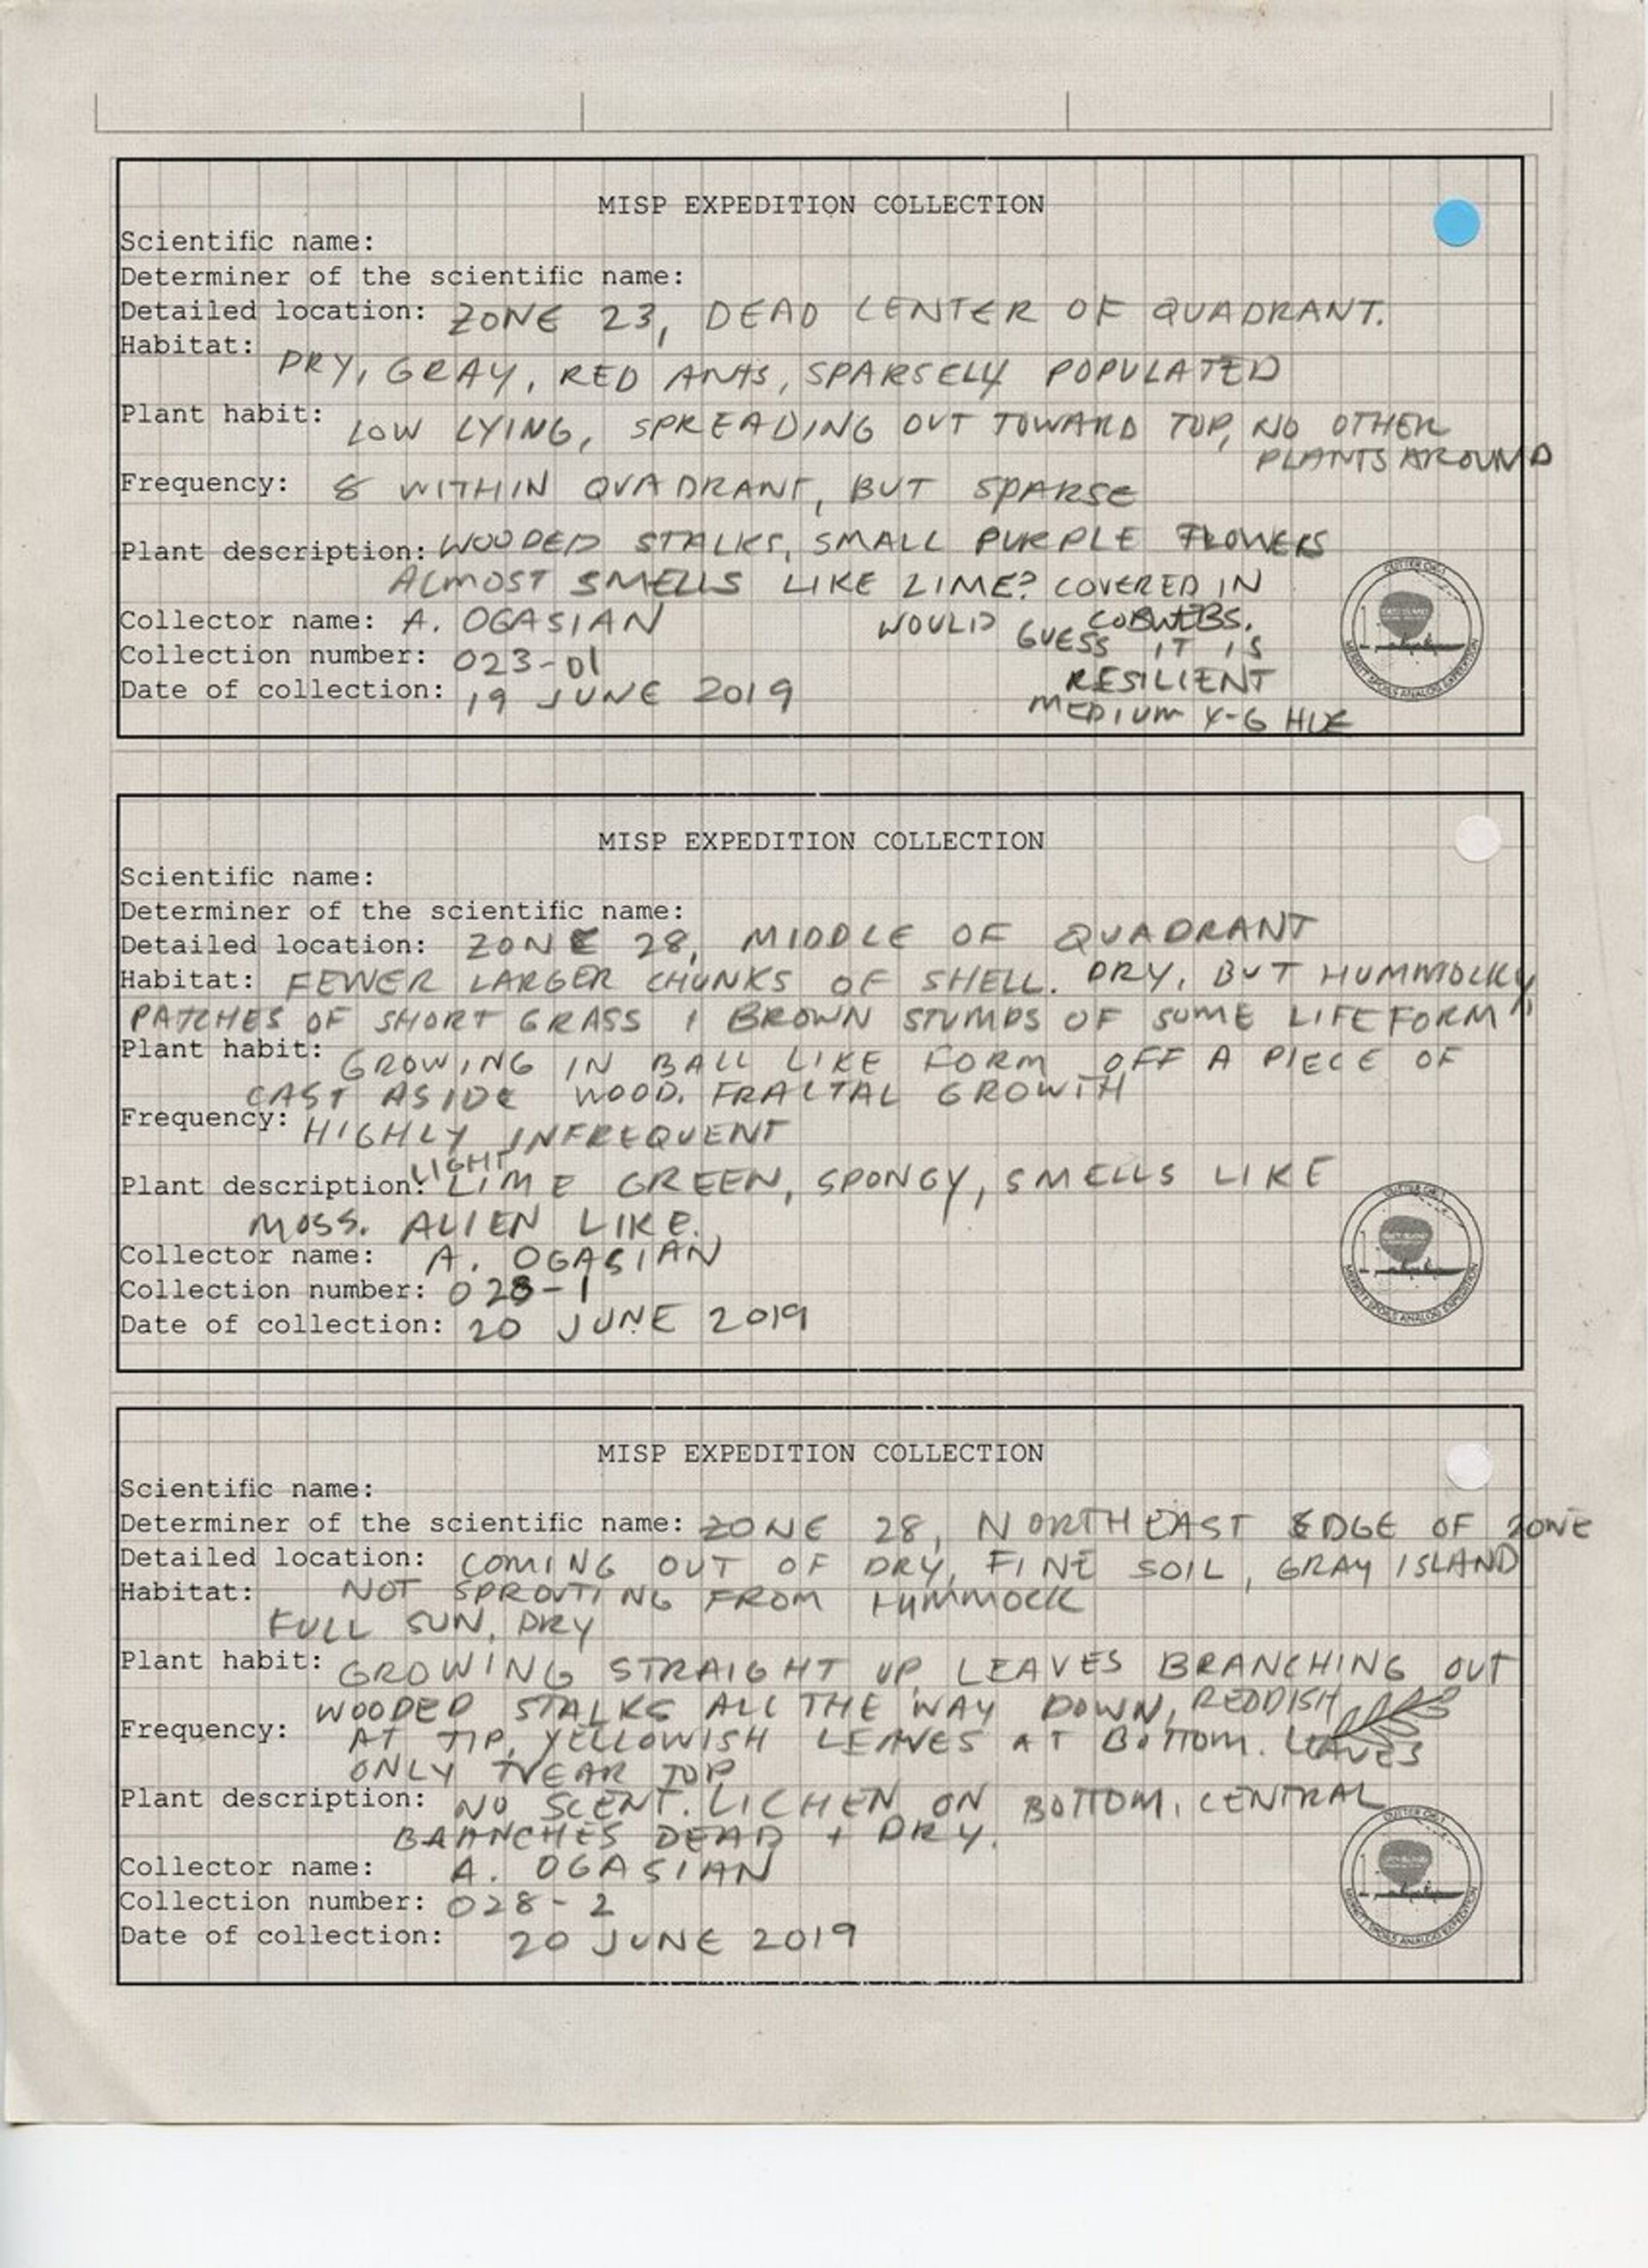 MISP EXPEDITION COLLECTION
Scientific name:
Determiner of the scientific name:
Detailed location: ZONE 23, DEAD CENTER OF QUADRANT.
Habitat: DRY, GRAY, RED ANTS, SPARSELY POPULATED
Plant habit: LOW LYING, SPREADING OUT TOWARD TOP, NO OTHER
PLANTS AROUND
Frequency: 8 WITHIN QUADRANT, BUT SPARSE
Plant description: WOODED STALKS, SMALL PURPLE FLOWERS
ALMOST SMELLS LIKE LIME? COVERED IN
COBWEBS.
Collector name: A. OGASIAN WOULD GUESS IT IS
Collection number: 023-01 RESILIENT
Date of collection: 19 JUNE 2019 MEDIUM Y-G HUE
MISP EXPEDITION COLLECTION
Scientific name:
Determiner of the scientific name:
Detailed location: ZONE 28, MIDDLE OF QUADRANT
Habitat: FEWER LARGER CHUNKS OF SHELL. DRY, BUT HUMMOCKY,
PATCHES OF SHORT GRASS & BROWN STUMPS OF SOME LIFEFORM
Plant habit: GROWING IN BALL LIKE FORM OFF A PIECE OF
CAST ASIDE WOOD. FRACTAL GROWTH
Frequency: HIGHLY INFREQUENT
Plant description: LIGHT LIME GREEN, SPONGY, SMELLS LIKE
MOSS. ALIEN LIKE.
Collector name: A. OGASIAN
Collection number: 028-1
Date of collection: 20 JUNE 2019
MISP EXPEDITION COLLECTION
Scientific name:
Determiner of the scientific name: ZONE 28, NORTHEAST EDGE OF ZONE
Detailed location: COMING OUT OF DRY, FINE SOIL, GRAY ISLAND
Habitat: NOT SPROUTING FROM HUMMOCK
FULL SUN, DRY
Plant habit: GROWING STRAIGHT UP, LEAVES BRANCHING OUT
WOODED STALKS ALL THE WAY DOWN, REDDISH
Frequency: AT TIP, YELLOWISH LEAVES AT BOTTOM. LEAVES
ONLY NEAR TOP
Plant description: NO SCENT. LICHEN ON BOTTOM, CENTRAL
BRANCHES DEAD + DRY.
Collector name: A. OGASIAN
Collection number: 028-2
Date of collection: 20 JUNE 2019